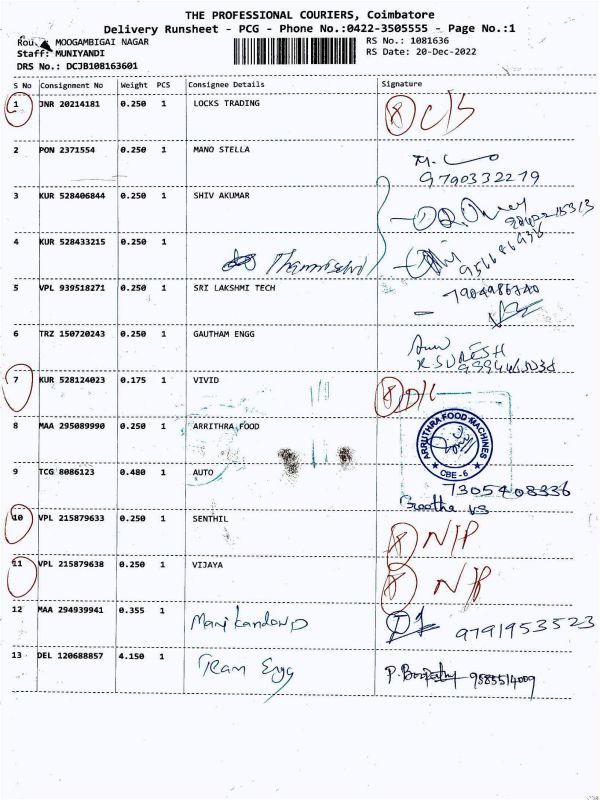 THE PROFESSIONAL COURIERS, Coimbatore
Delivery Runsheet - PCG - Phone No.:0422-3505555 - Page No.:1
MOOGAMBIGAI NAGAR RS No.: 1081636
Staff: MUNIYANDI RS Date: 20-Dec-2022
DRS No.: DCJB108163601
S No Consignment No Weight PCS Consignee Details Signature
1 JNR 20214181 0.250 1 LOCKS TRADING
2 PON 2371554 0.250 1 MANO STELLA
9790332279
3 KUR 528406844 0.250 1 SHIV AKUMAR
4 KUR 528433215 0.250 1
5 VPL 939518271 0.250 1 SRI LAKSHMI TECH 7904986340
6 TRZ 150720243 0.250 1 GAUTHAM ENGG
K SURESH
7 KUR 528124023 0.175 1 VIVID
8 MAA 295089990 0.250 1 ARRITHRA FOOD
ARRUTHRA FOOD MACHINES
CBE - 6
9 TCG 8086123 0.480 1 AUTO
7305408336
10 VPL 215879633 0.250 1 SENTHIL N/P
11 VPL 215879638 0.250 1 VIJAYA N/P
12 MAA 294939941 0.355 1 Manikandan D 9791953523
13 DEL 120688857 4.150 1 Team Engg P. Boopathy 9585514009